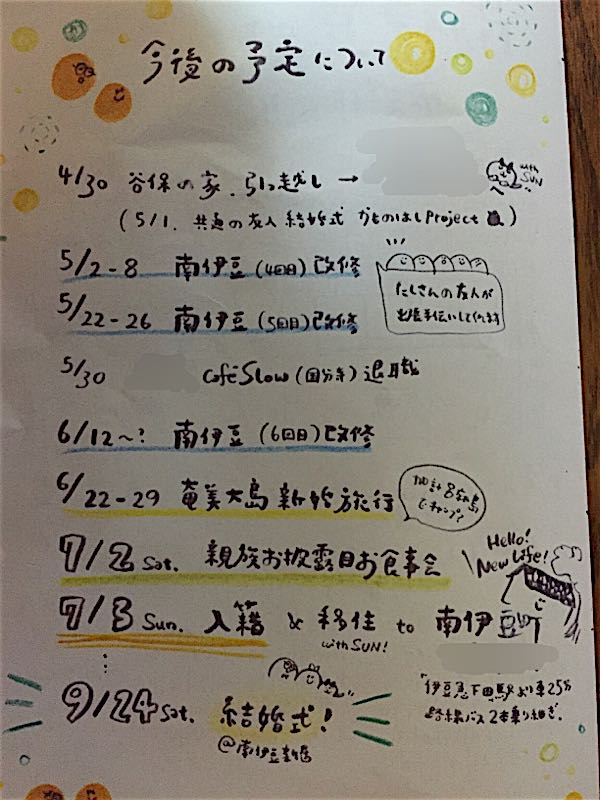 今後の予定について
4/30 谷保の家、引っ越し →
with SUN
(5/1. 共通の友人 結婚式 かものはしProject)
5/2-8 南伊豆(4回目)改修
たくさんの友人が
お手伝いしてくれます
5/22-26 南伊豆(5回目)改修
5/30 Café Slow(国分寺)退職
6/12〜? 南伊豆(6回目)改修
6/22-29 奄美大島 新婚旅行
でキャンプ?
7/2 Sat. 親族お披露目お食事会
Hello!
New Life!
7/3 Sun. 入籍 & 移住 to 南伊豆町
with SUN!
伊豆急下田駅より車25分
路線バス2本乗り継ぎ。
9/24 Sat. 結婚式!
@南伊豆新居